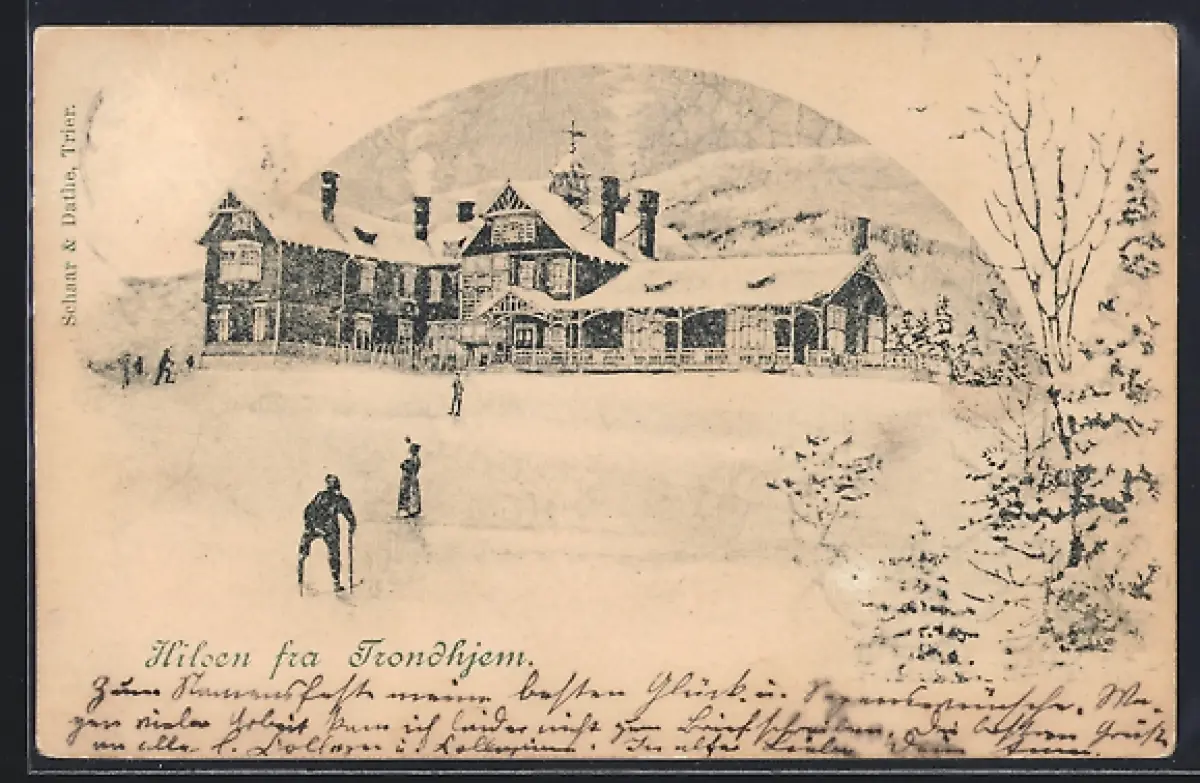 Schaar & Dathe, Trier.
Hilsen fra Trondhjem.
Zum Namensfeste meine besten Glück u. Segenswünsche. We-
gen vieler Arbeit kam ich leider nicht zum Briefschreiben. Die besten Grüße
an alle u. In alter